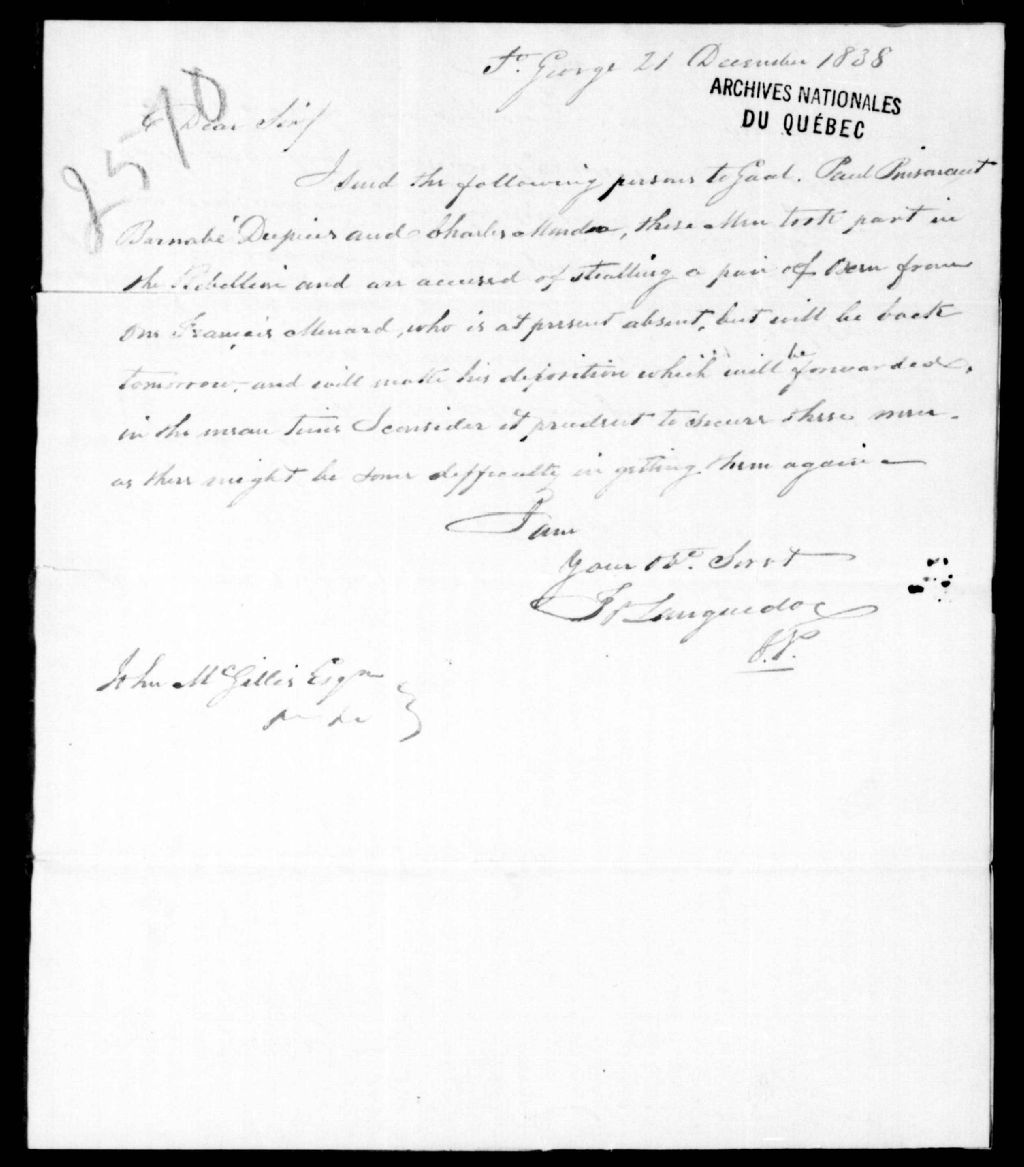 St. George 21 December 1838
ARCHIVES NATIONALES
DU QUÉBEC
2570
Dear Sir/
I send the following persons to Gaol. Paul
Barnabé Dupuis and Charles, these Men took part in
the Rebellion and are accused of stealling a pair of Oxen from
One François Menard, who is at present absent, but will be back
tomorrow, and will make his deposition which will be forwarded,
in the mean time I consider it prudent to secure these men
as there might be some deffeculty in getting them again —
I am
Your Obt. Servt
Languedoc
J.P.
John McGillis Esqre